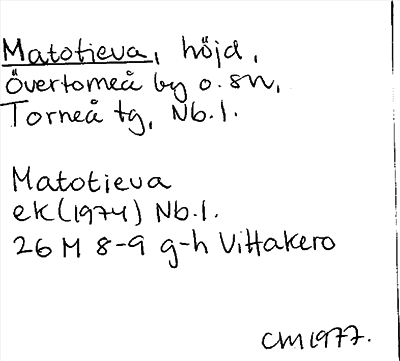 Matotieva, höjd,
Övertorneå by o. sn,
Torneå tg, Nb.l.
Matotieva
ek (1974) Nb.l.
26 M 8-9 g-h Vittakero
CM 1977.